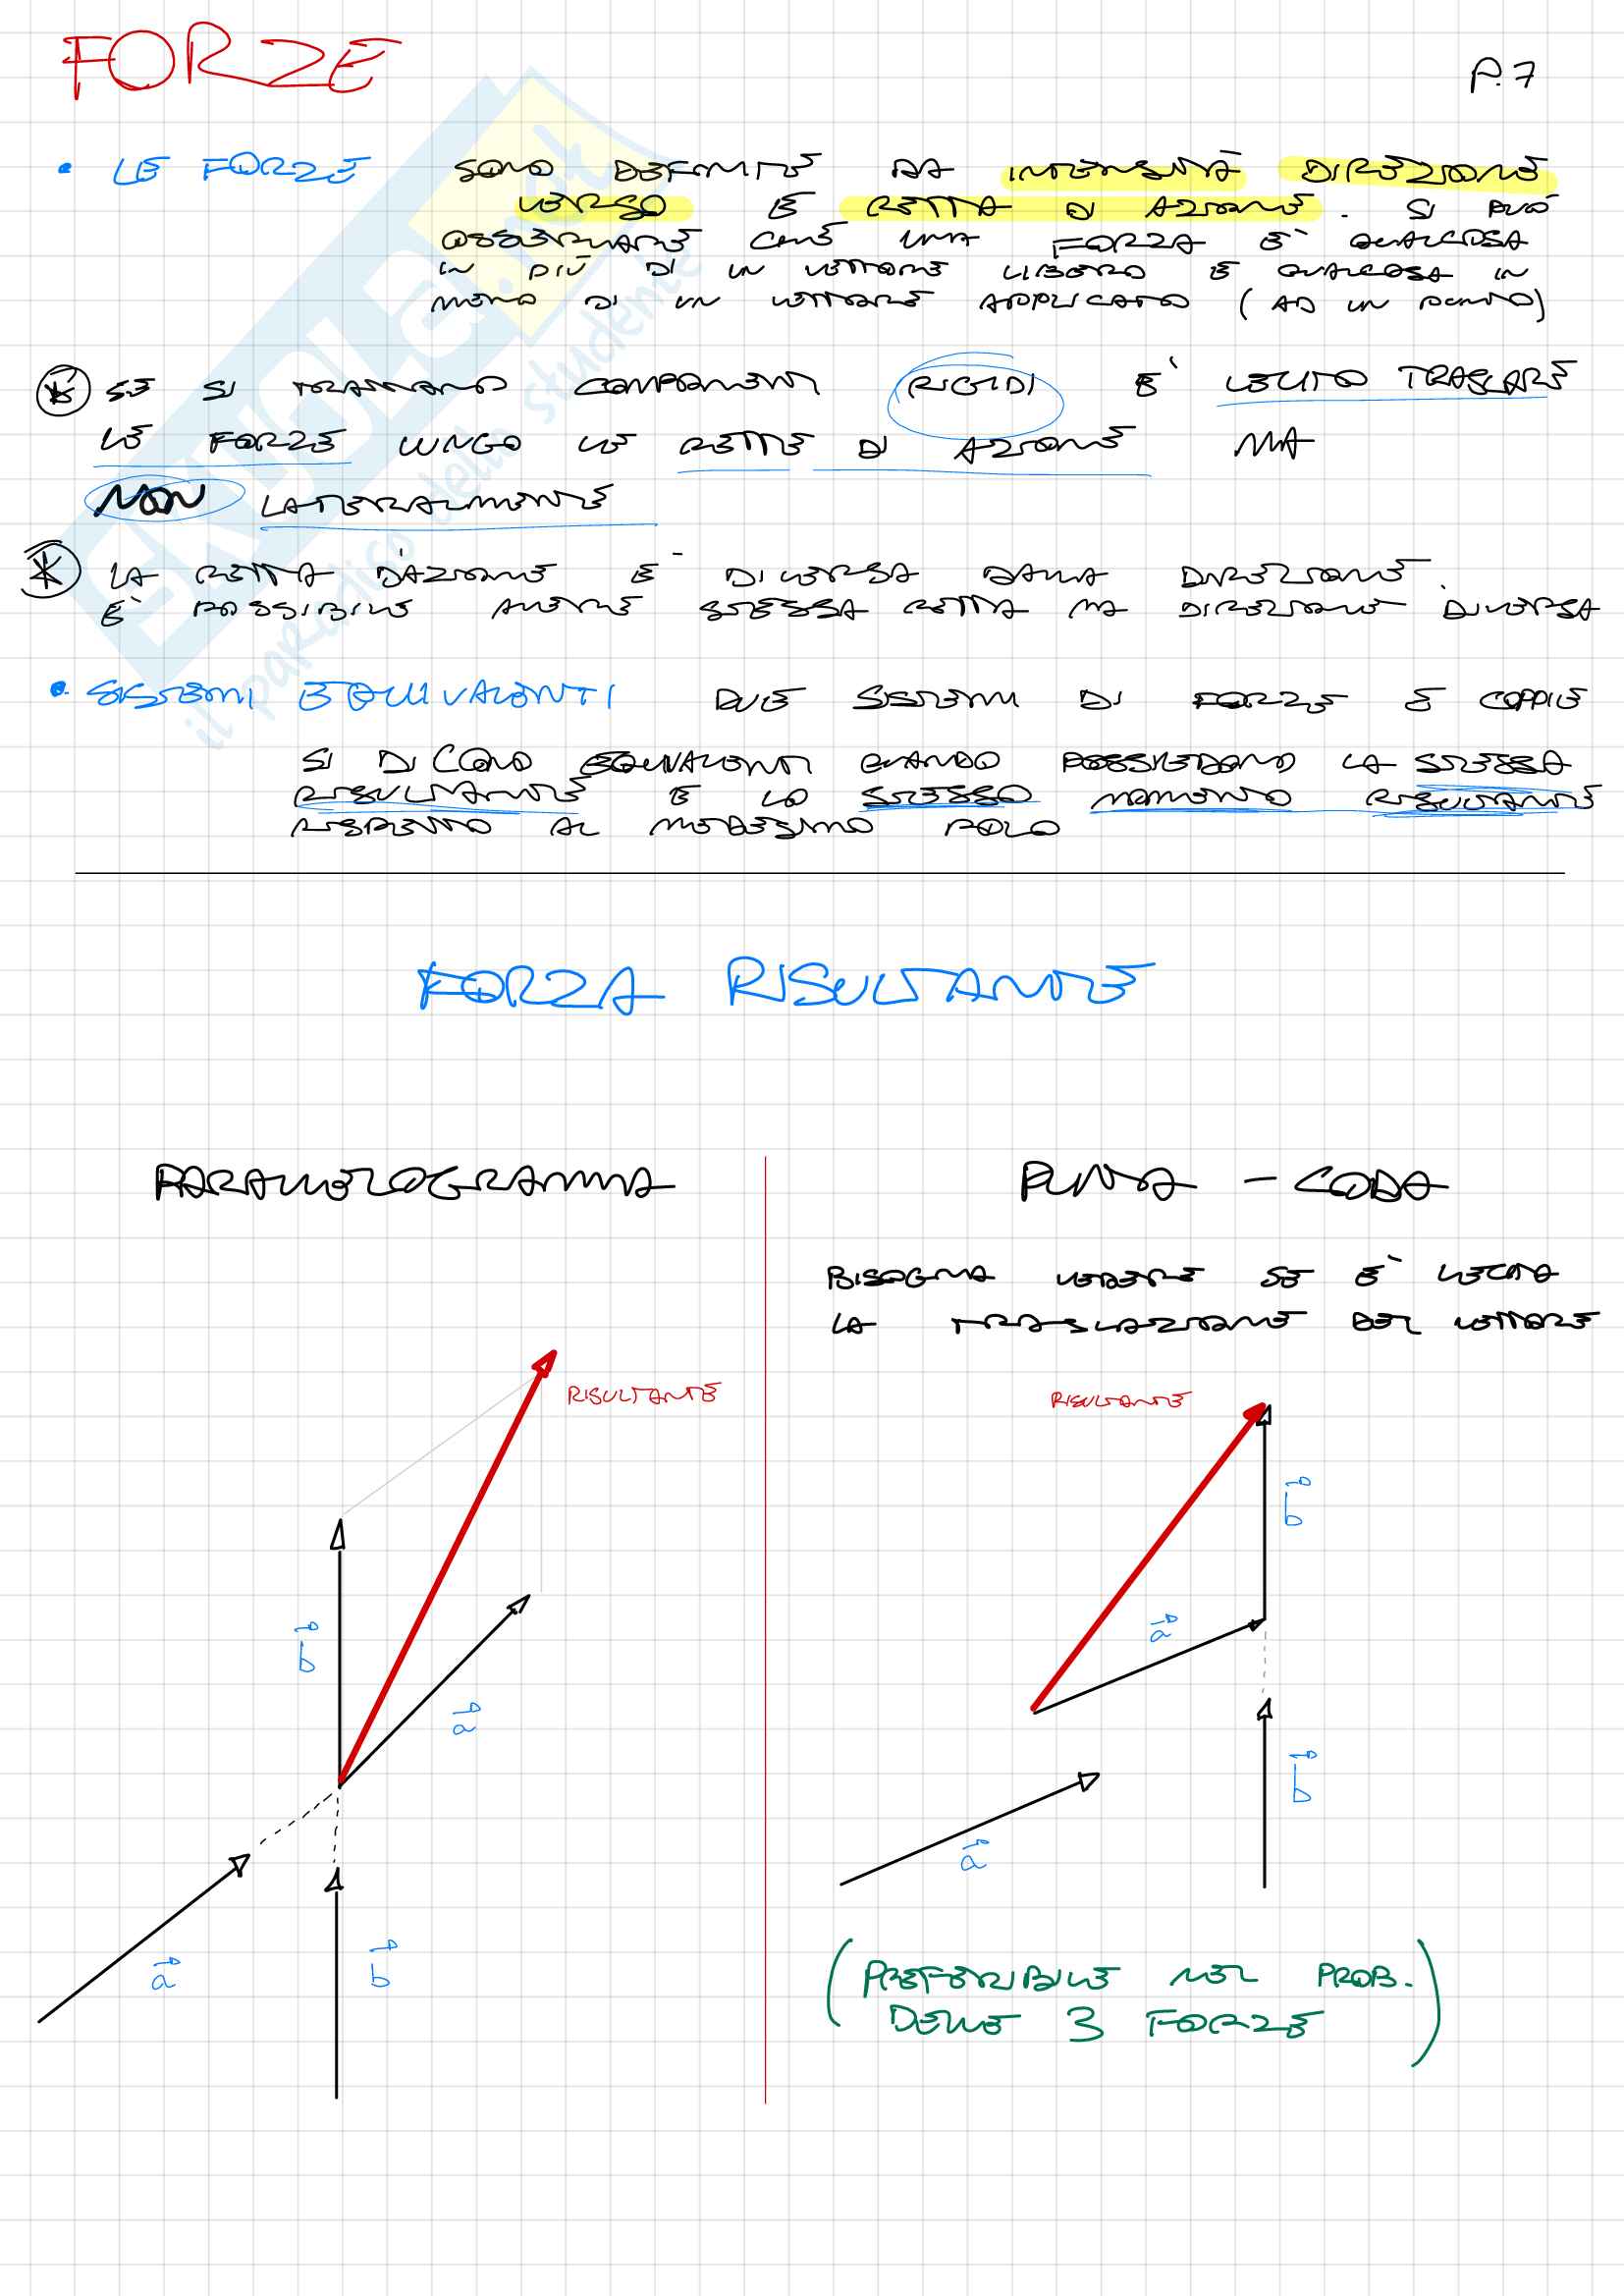 FORZE
P.7
• LE FORZE SONO DEFINITE DA INTENSITÀ DIREZIONE
VERSO E RETTA DI AZIONE. SI PUÒ
OSSERVARE CHE UNA FORZA E' QUALCOSA
IN PIÙ DI UN VETTORE LIBERO E QUALCOSA IN
MENO DI UN VETTORE APPLICATO (AD UN PUNTO)
* SE SI TRATTANO COMPONENTI RIGIDI E' LECITO TRASLARE
LE FORZE LUNGO LE RETTE DI AZIONE MA
NON LATERALMENTE
* LA RETTA D'AZIONE E' DIVERSA DALLA DIREZIONE.
E' POSSIBILE AVERE STESSA RETTA MA DIREZIONE DIVERSA
• SISTEMI EQUIVALENTI DUE SISTEMI DI FORZE E COPPIE
SI DICONO EQUIVALENTI QUANDO POSSIEDONO LA STESSA
RISULTANTE E LO STESSO MOMENTO RISULTANTE
RISPETTO AL MEDESIMO POLO
FORZA RISULTANTE
PARALLELOGRAMMA
RISULTANTE
b
a
a
b
PUNTA - CODA
BISOGNA VEDERE SE E' LECITA
LA TRASLAZIONE DEL VETTORE
RISULTANTE
b
a
b
a
(PREFERIBILE NEL PROB.
DELLE 3 FORZE)
SKUOLA.net
il paradiso dello studente